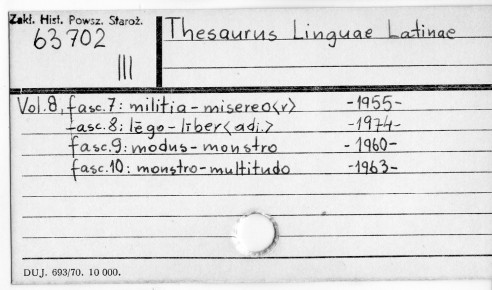 Zakł. Hist. Powsz. Staroż.
63702
III
Thesaurus Linguae Latinae
Vol. 8, fasc. 7: militia - misereo<r> -1955-
fasc. 8: lēgo - līber<adi.> -1974-
fasc. 9: modus - monstro -1960-
fasc. 10: monstro - multitudo -1963-
DUJ. 693/70. 10 000.